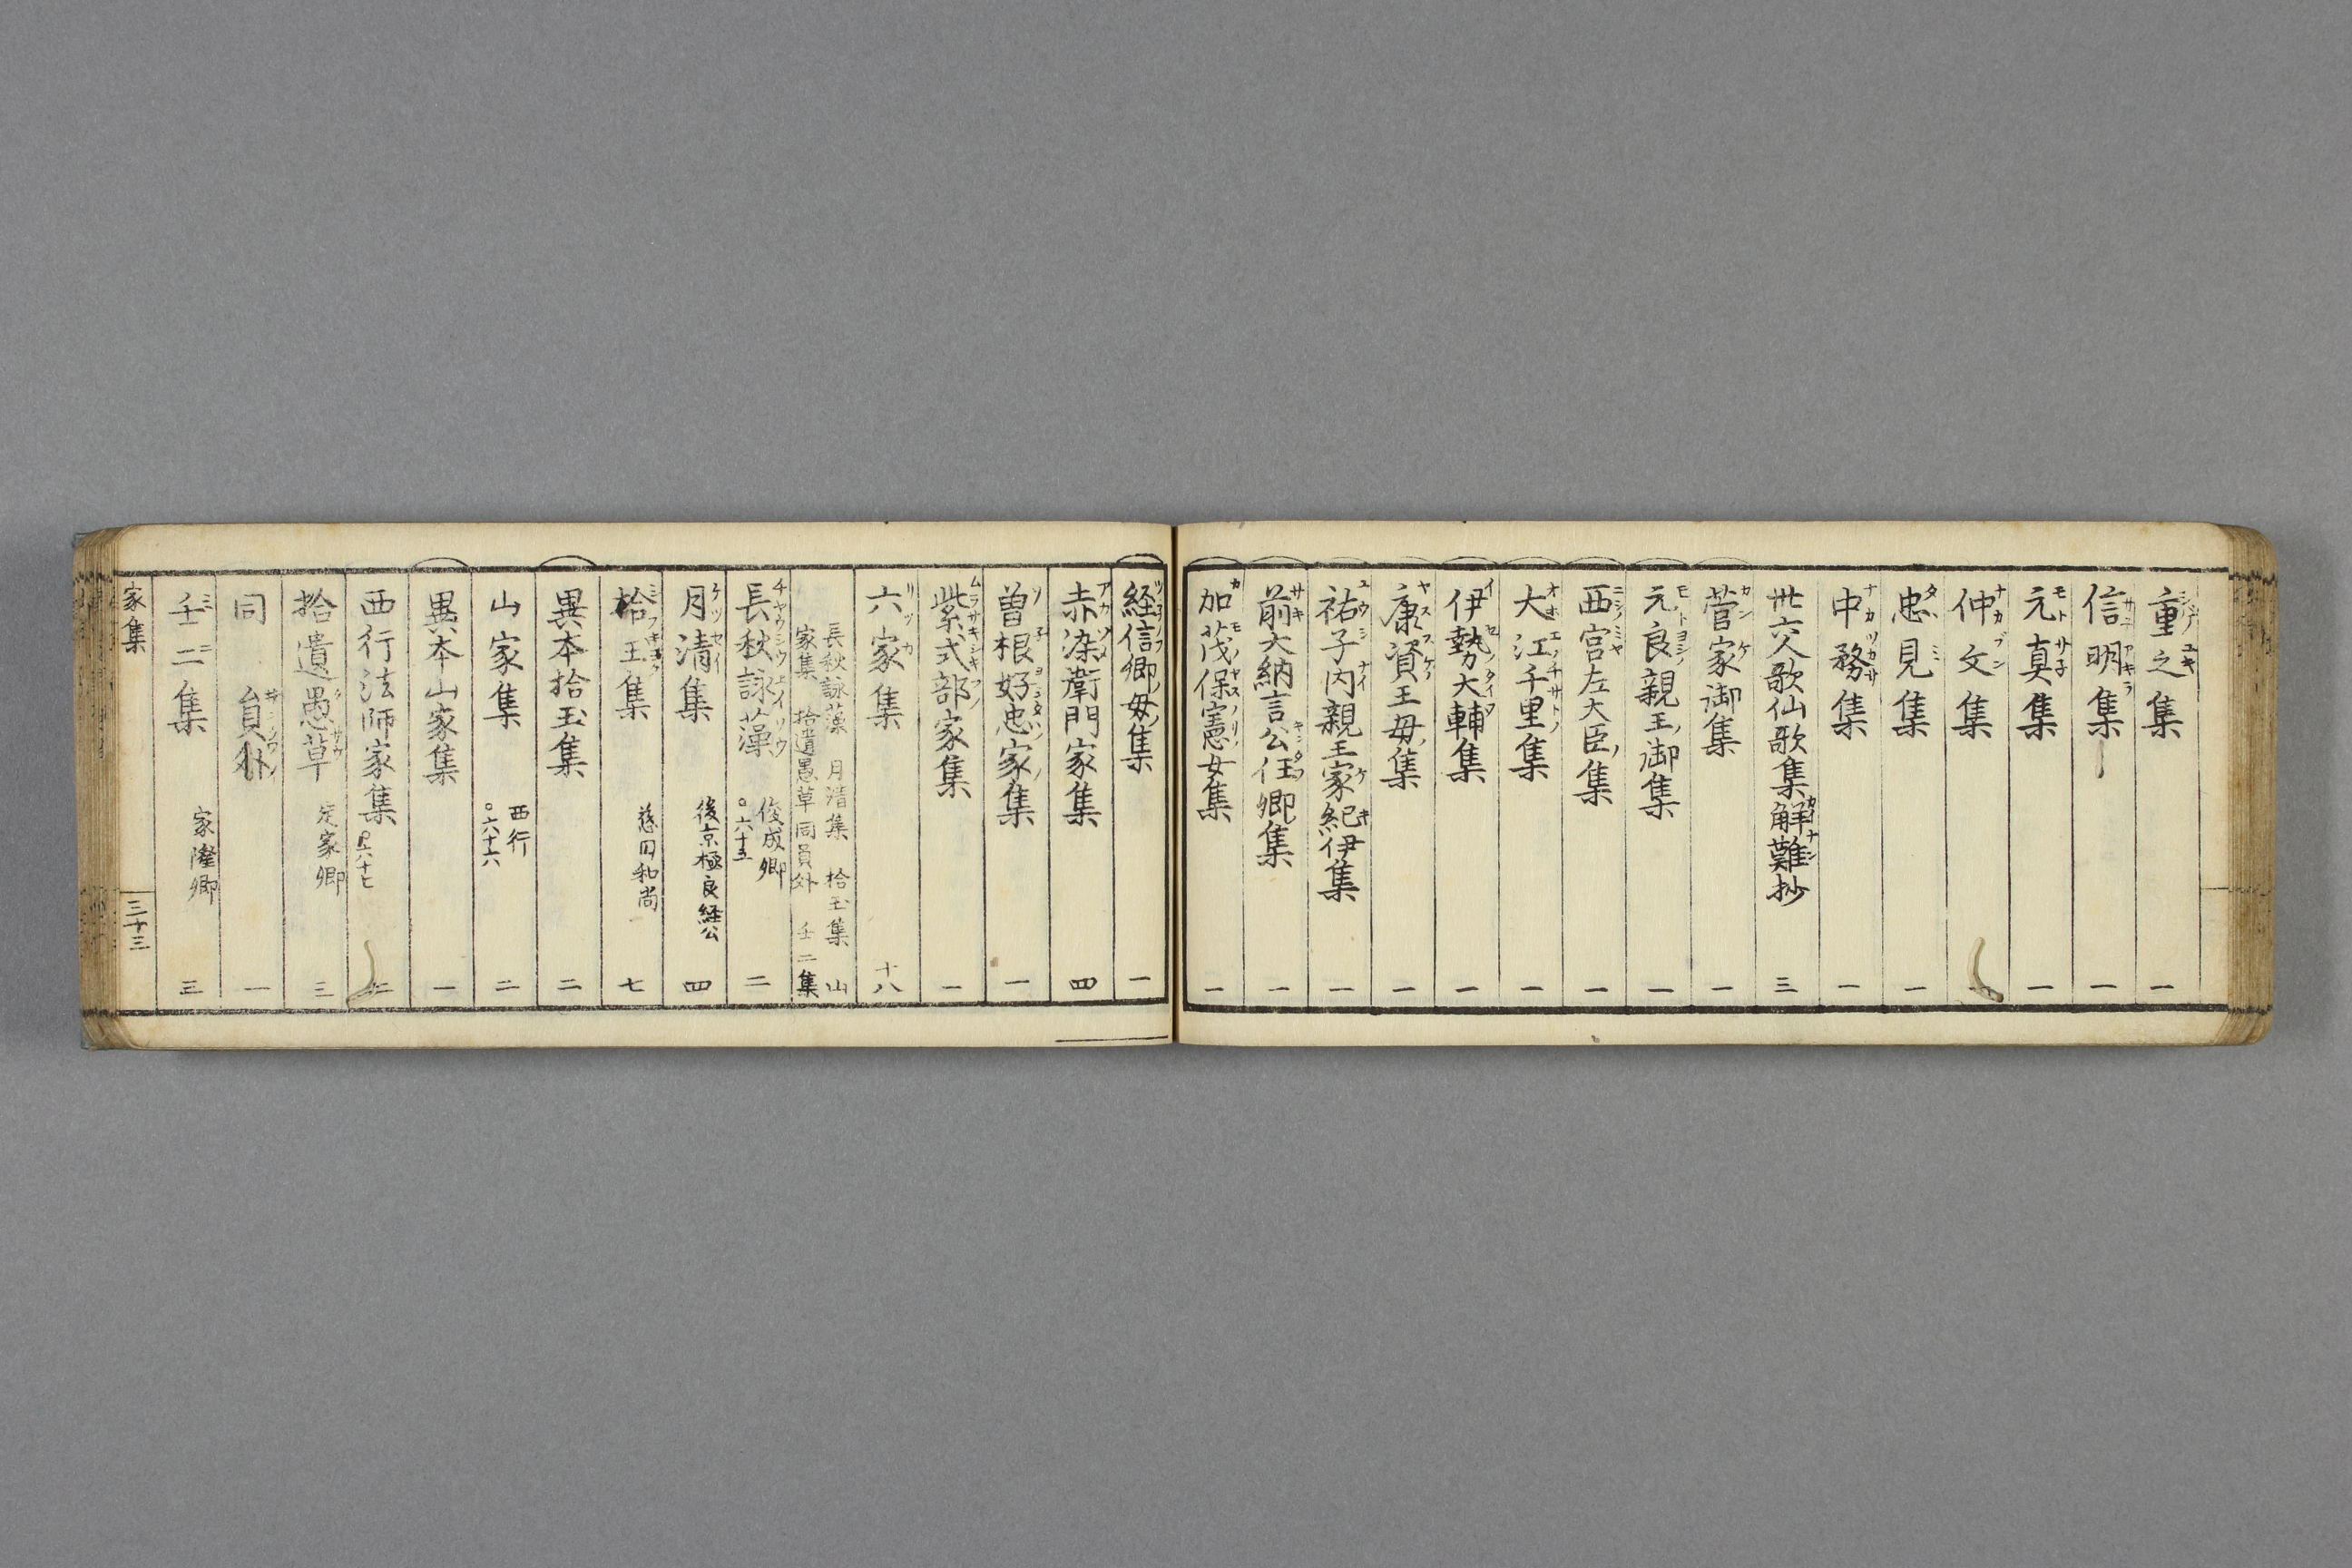 重之集 一
信明集 一
元真集 一
仲文集
忠見集 一
中務集 一
卅六人歌仙歌集解難抄 三
菅家御集 一
元良親王御集 一
西宮左大臣集 一
大江千里集 一
伊勢大輔集 一
康資王母集 一
祐子内親王家紀伊集 一
前大納言公任卿集 一
加茂保憲女集 一
経信卿母集 一
赤染衛門家集 四
曽根好忠家集 一
紫式部家集 一
六家集 十八
長秋詠藻 月清集 拾玉集 山
家集 拾遺愚草 同員外 壬二集
長秋詠藻 俊成卿 。六十五 二
月清集 後京極良経公 四
拾玉集 慈円和尚 七
異本拾玉集 二
山家集 西行 。六十六 二
異本山家集 一
西行法師家集 。六十七 二
拾遺愚草 定家卿 三
同 員外 一
壬二集 家隆卿 三
家集 三十三